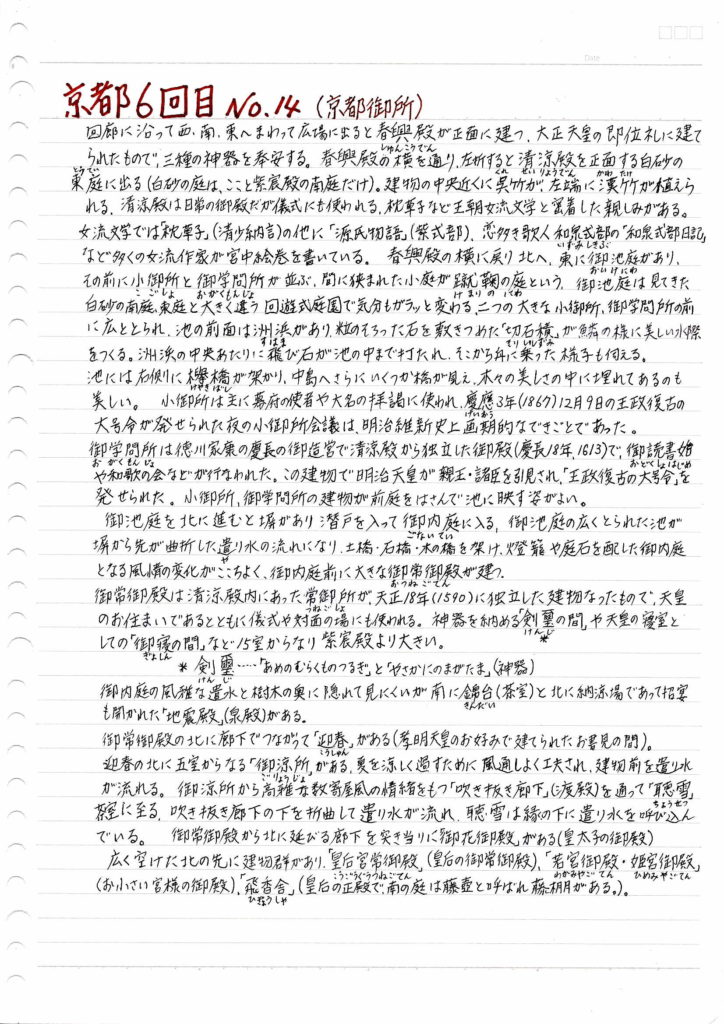 Date
京都6回目 No.14 (京都御所)
回廊に沿って西、南、東へまわって広場に出ると春興殿が正面に建つ、大正天皇の即位礼に建て
しゅんこうでん
られたもので、三種の神器を奉安する。春興殿の横を通り、左折すると清涼殿を正面する白砂の
とうてい くれ せいりょうでん かわ たけ
東庭に出る(白砂の庭は、ここと紫宸殿の南庭だけ)。建物の中央近くに呉竹が、左端に漢竹が植えら
れる、清涼殿は日常の御殿だが儀式にも使われる、枕草子など王朝女流文学と密着した親しみがある。
女流文学では「枕草子」(清少納言)の他に「源氏物語」(紫式部)、恋多き歌人和泉式部の「和泉式部日記」
いずみしきぶ
など多くの女流作家が宮中絵巻を書いている。 春興殿の横に戻り北へ、東に御池庭があり、
おいけにわ
その前に小御所と御学問所が並ぶ、間に狭まれた小庭が蹴鞠の庭という、 御池庭は見てきた
こごしょ おがくもんじょ けまりの にわ
白砂の南庭、東庭と大きく違う回遊式庭園で気分もガラッと変わる、二つの大きな小御所、御学問所の前
に広ととられ、池の前面は洲浜があり、粒のそろった石を敷きつめた「切石積」が鱗の様に美しい水際
すはま きりいしずみ
をつくる。洲浜の中央あたりに飛び石が池の中まで打たれ、そこから舟に乗った様子も伺える。
池には右側に欅橋が架かり、中島へさらにいくつか橋が見え、木々の美しさの中に埋れてあるのも
けやきばし
美しい。 小御所は主に幕府の使者や大名の拝謁に使われ、慶應3年(1867)12月9日の王政復古の
けいおう
大号令が発せられた夜の小御所会議は、明治維新史上画期的なできごとであった。
御学問所は徳川家康の慶長の御造営で清涼殿から独立した御殿(慶長18年、1613)で、御読書始
おがくもんじょ おどくしょはじめ
や和歌の会などが行なわれた。この建物で明治天皇が親王・諸臣を引見され、「王政復古の大号令」を
発せられた。小御所、御学問所の建物が前庭をはさんで池に映す姿がよい。
御池庭を北に進むと塀があり潜戸を入って御内庭に入る、御池庭の広くとられた池が
ごないてい
塀から先が曲折した遣り水の流れになり、土橋・石橋・木の橋を架け、燈籠や庭石を配した御内庭
や
となる風情の変化がここちよく、御内庭前に大きな御常御殿が建つ。
おつねごてん
御常御殿は清涼殿内にあった常御所が、天正18年(1590)に独立した建物なったもので、天皇
つねごしょ
のお住まいであるとともに儀式や対面の場にも使われる。神器を納める「剣璽の間」や天皇の寝室と
けんじ
しての「御寝の間」など15室からなり紫宸殿より大きい。
ぎょしん
* 剣璽‥‥「あめのむらくものつるぎ」と「やさかにのまがたま」(神器)
けんじ
御内庭の風雅な遣水と樹木の奥に隠れて見にくいが南に錦台(茶室)と北に納涼場であって招宴
きんだい
も開かれた「地震殿」(泉殿)がある。
御常御殿の北に廊下でつながって「迎春」がある(孝明天皇のお好みで建てられたお書見の間)。
こうしゅん
迎春の北に五室からなる「御涼所」がある、夏を涼しく過すために風通しよく工夫され、建物前を遣り水
ごりょうじょ
が流れる。御涼所から高雅な数寄屋風の情緒をもつ「吹き抜き廊下」(渡殿)を通って「聴雪」
ちょうせつ
茶室に至る、吹き抜き廊下の下を折曲して遣り水が流れ、聴雪は縁の下に遣り水を呼び込ん
でいる。 御常御殿から北に延びる廊下を突き当りに「御花御殿」がある(皇太子の御殿)
広く空けた北の先に建物群があり、「皇后宮常御殿」(皇后の御常御殿)、「若宮御殿・姫宮御殿」
こうごうぐうつねごてん わかみやごてん ひめみやごてん
(お小さい宮様の御殿)、「飛香舎」(皇后の正殿で、南の庭は藤壺と呼ばれ藤棚がある。)。
ひぎょうしゃ